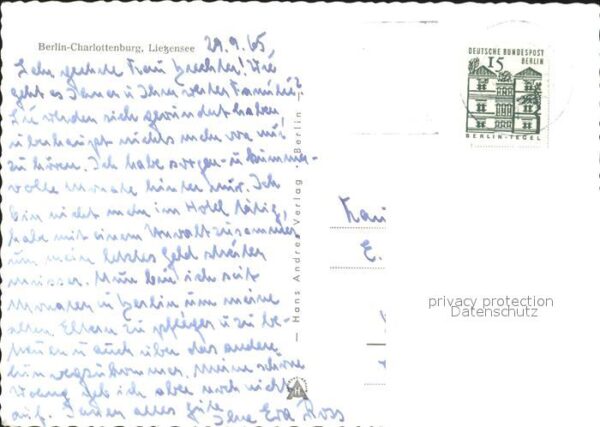 Berlin-Charlottenburg, Lietzensee
29.9.65
Sehr geehrte Frau Brechter! Wie
geht es Ihnen u Ihrer werten Familie?
Sie werden sich gewundert haben
überhaupt nichts mehr von mir
zu hören. Ich habe sorgen- u kummer-
volle Monate hinter mir. Ich
bin nicht mehr im Hotel tätig,
habe mit einem Anwalt zusammen
um mein letztes Geld streiten
müssen. Nun bin ich seit
Monaten in Berlin um meine
alten Eltern zu pflegen u zu be-
treuen u auch über das andere
hinwegzukommen. Meine schöne
Wong geb ich aber noch nicht
auf. Ihnen alles gute
Ihre Eva Ross
— Hans Andres Verlag · Berlin —
DEUTSCHE BUNDESPOST
15 BERLIN
BERLIN-TEGEL
E.
privacy protection
Datenschutz